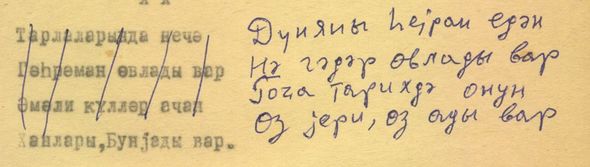 * *
Тарлаларында нечә
Гәһрәман өвлады вар
Әмәли күлләр ачан
Ханлары, Бунјады вар.
Дүнјаны һејран едән
Нә гәдәр өвлады вар
Гоча тарихдә онун
Өз јери, өз ады вар